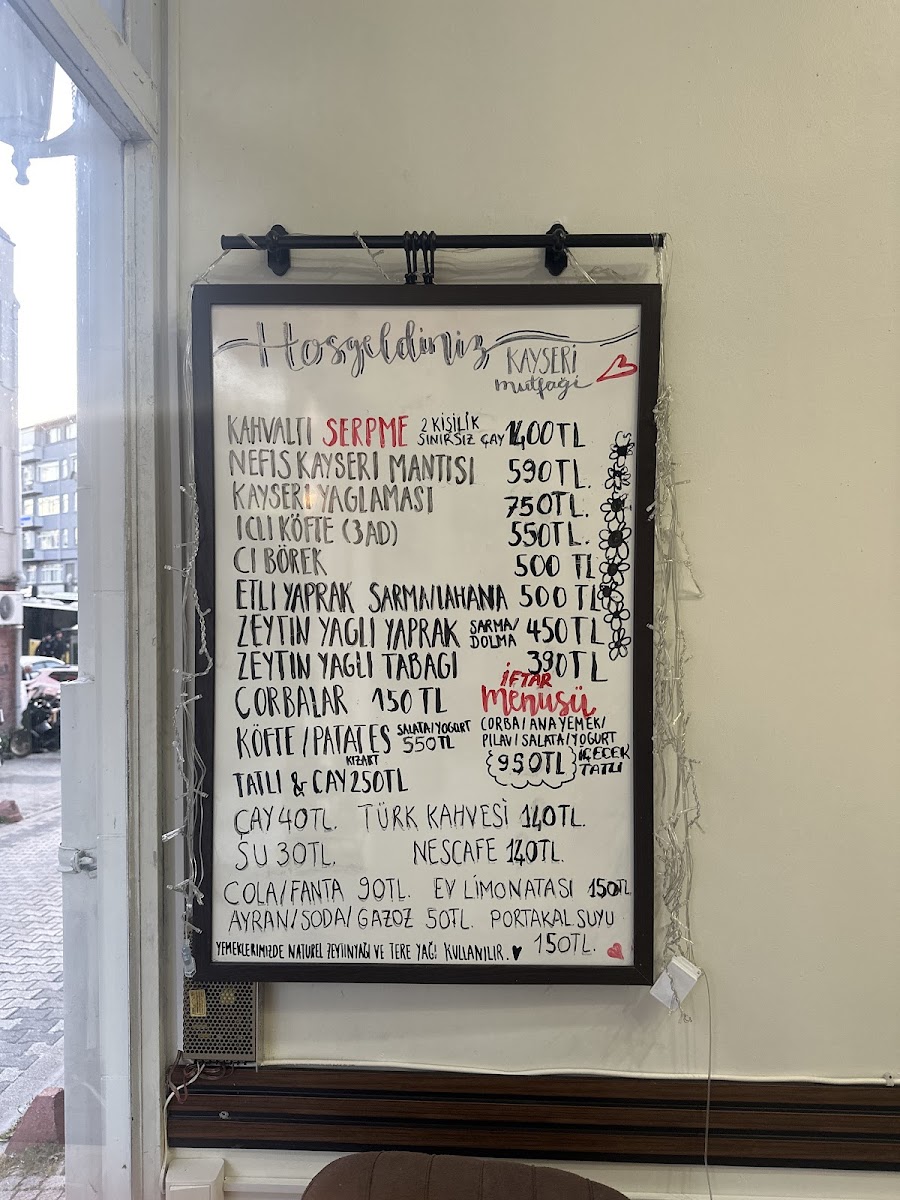 Hoşgeldiniz
KAYSERİ
mutfağı
KAHVALTI SERPME 2 KİŞİLİK SINIRSIZ ÇAY 1400TL
NEFIS KAYSERI MANTISI 590TL.
KAYSERI YAGLAMASI 750TL.
ICLI KÖFTE (3AD) 550TL.
CI BÖREK 500 TL
ETLI YAPRAK SARMA/LAHANA 500TL
ZEYTIN YAGLI YAPRAK SARMA/DOLMA 450TL
ZEYTIN YAGLI TABAGI 390TL
CORBALAR 150TL
KÖFTE/PATATES KIZART SALATA/YOGURT 550TL
TATLI & CAY 250TL
İFTAR
Menüsü
CORBA/ANA YEMEK/
PILAV/SALATA/YOGURT
950TL İÇECEK TATLI
ÇAY 40TL. TÜRK KAHVESİ 140TL.
SU 30TL. NESCAFE 140TL.
COLA/FANTA 90TL. EV LIMONATASI 150TL
AYRAN/SODA/GAZOZ 50TL. PORTAKAL SUYU
150TL.
YEMEKLERIMIZDE NATUREL ZEYTINYAĞI VE TERE YAĞI KULLANILIR.